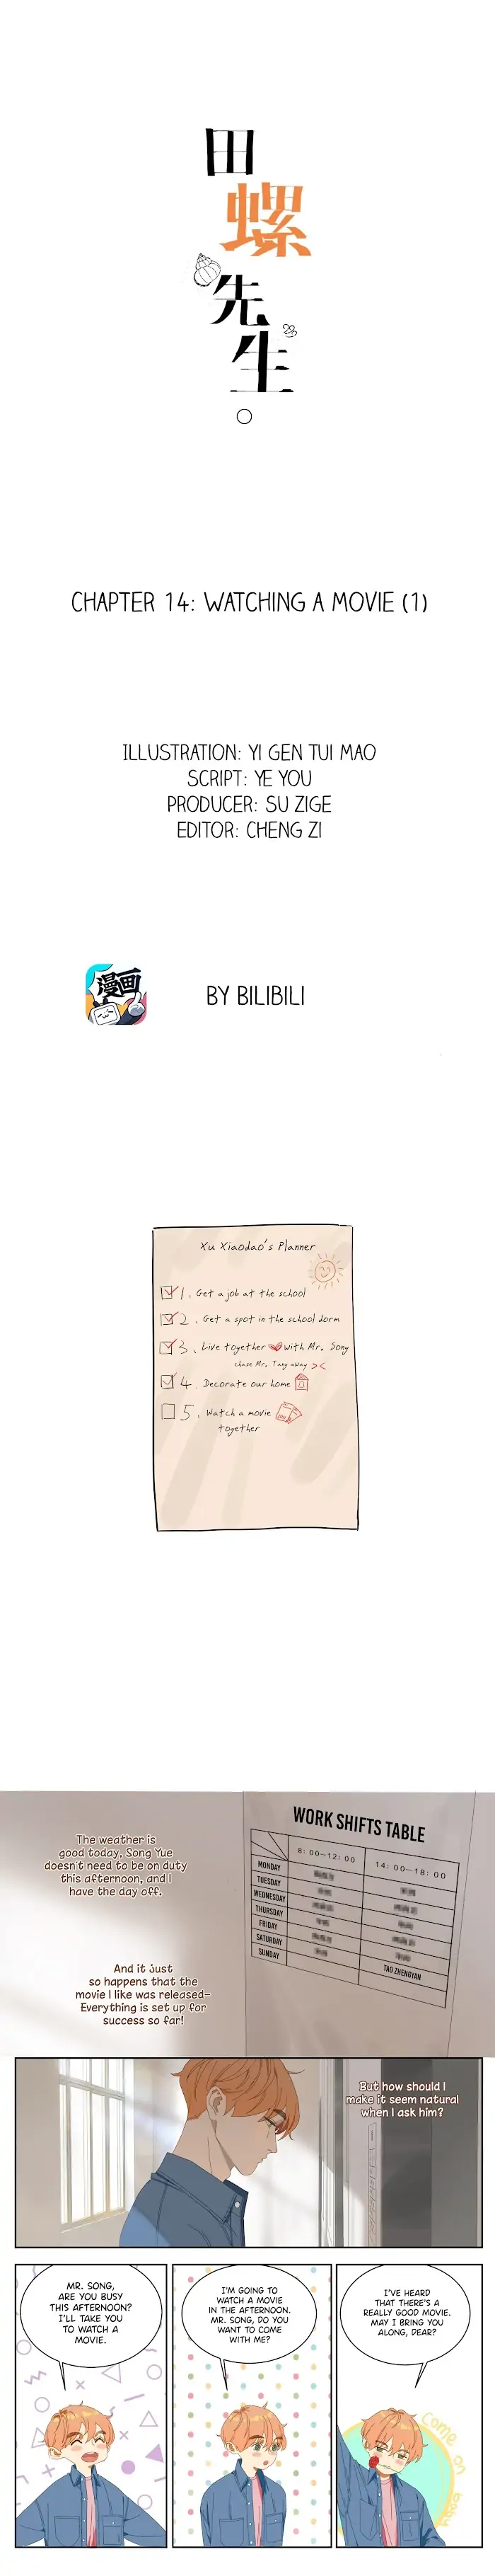 田
螺
先
生
CHAPTER 14: WATCHING A MOVIE (1)
ILLUSTRATION: YI GEN TUI MAO
SCRIPT: YE YOU
PRODUCER: SU ZIGE
EDITOR: CHENG ZI
漫画
BY BILIBILI
Xu Xiaodao's Planner
1. Get a job at the school
2. Get a spot in the school dorm
3. Live together with Mr. Song
chase Mr. Tang away ><
4. Decorate our home
5. Watch a movie
together
WORK SHIFTS TABLE
8:00-12:00
14:00-18:00
MONDAY
TUESDAY
WEDNESDAY
THURSDAY
FRIDAY
SATURDAY
SUNDAY
TAO ZHENGYAN
The weather is
good today, Song Yue
doesn't need to be on duty
this afternoon, and I
have the day off.
And it just
so happens that the
movie I like was released-
Everything is set up for
success so far!
But how should I
make it seem natural
when I ask him?
MR. SONG,
ARE YOU BUSY
THIS AFTERNOON?
I'LL TAKE YOU
TO WATCH A
MOVIE.
I'M GOING TO
WATCH A MOVIE
IN THE AFTERNOON.
MR. SONG, DO YOU
WANT TO COME
WITH ME?
I'VE HEARD
THAT THERE'S A
REALLY GOOD MOVIE.
MAY I BRING YOU
ALONG, DEAR?
Come on
baby